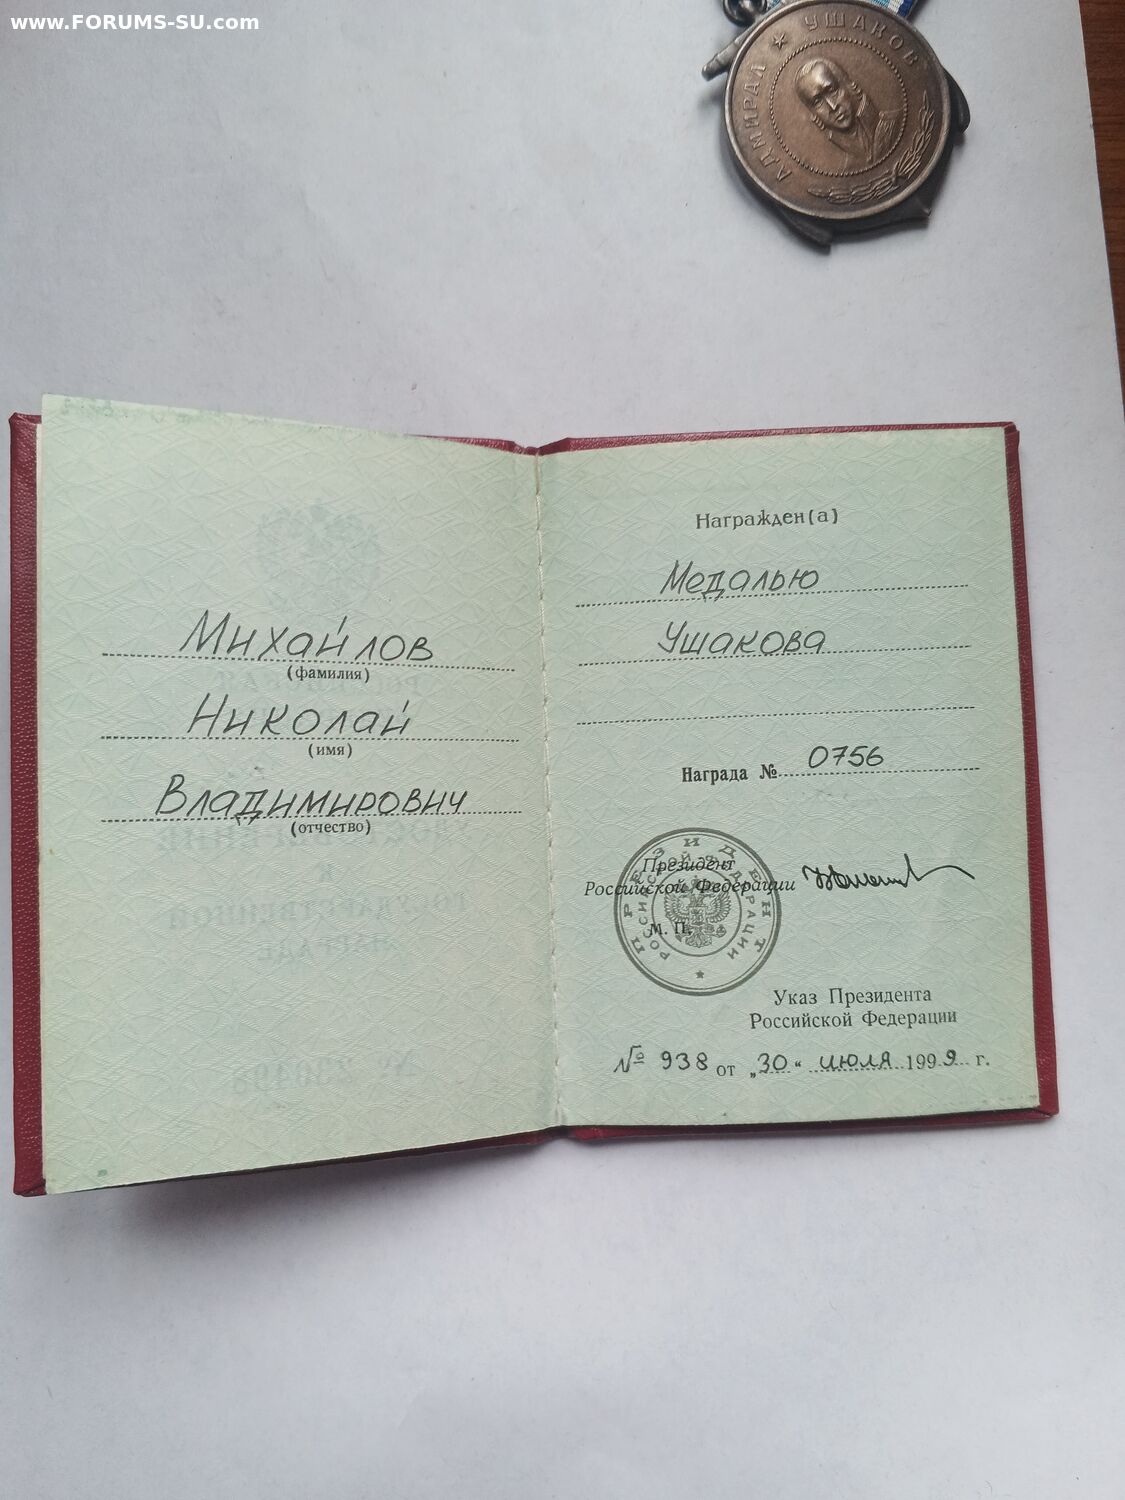 www.FORUMS-SU.com
АДМИРАЛ ★ УШАКОВ
Михайлов
(фамилия)
Николай
(имя)
Владимирович
(отчество)
Награжден(а)
Медалью
Ушакова
Награда № 0756
Президент
Российской Федерации
М. П.
ПРЕЗИДЕНТ
РОССИЙСКОЙ ФЕДЕРАЦИИ
Указ Президента
Российской Федерации
№ 938 от „30“ июля 1999 г.